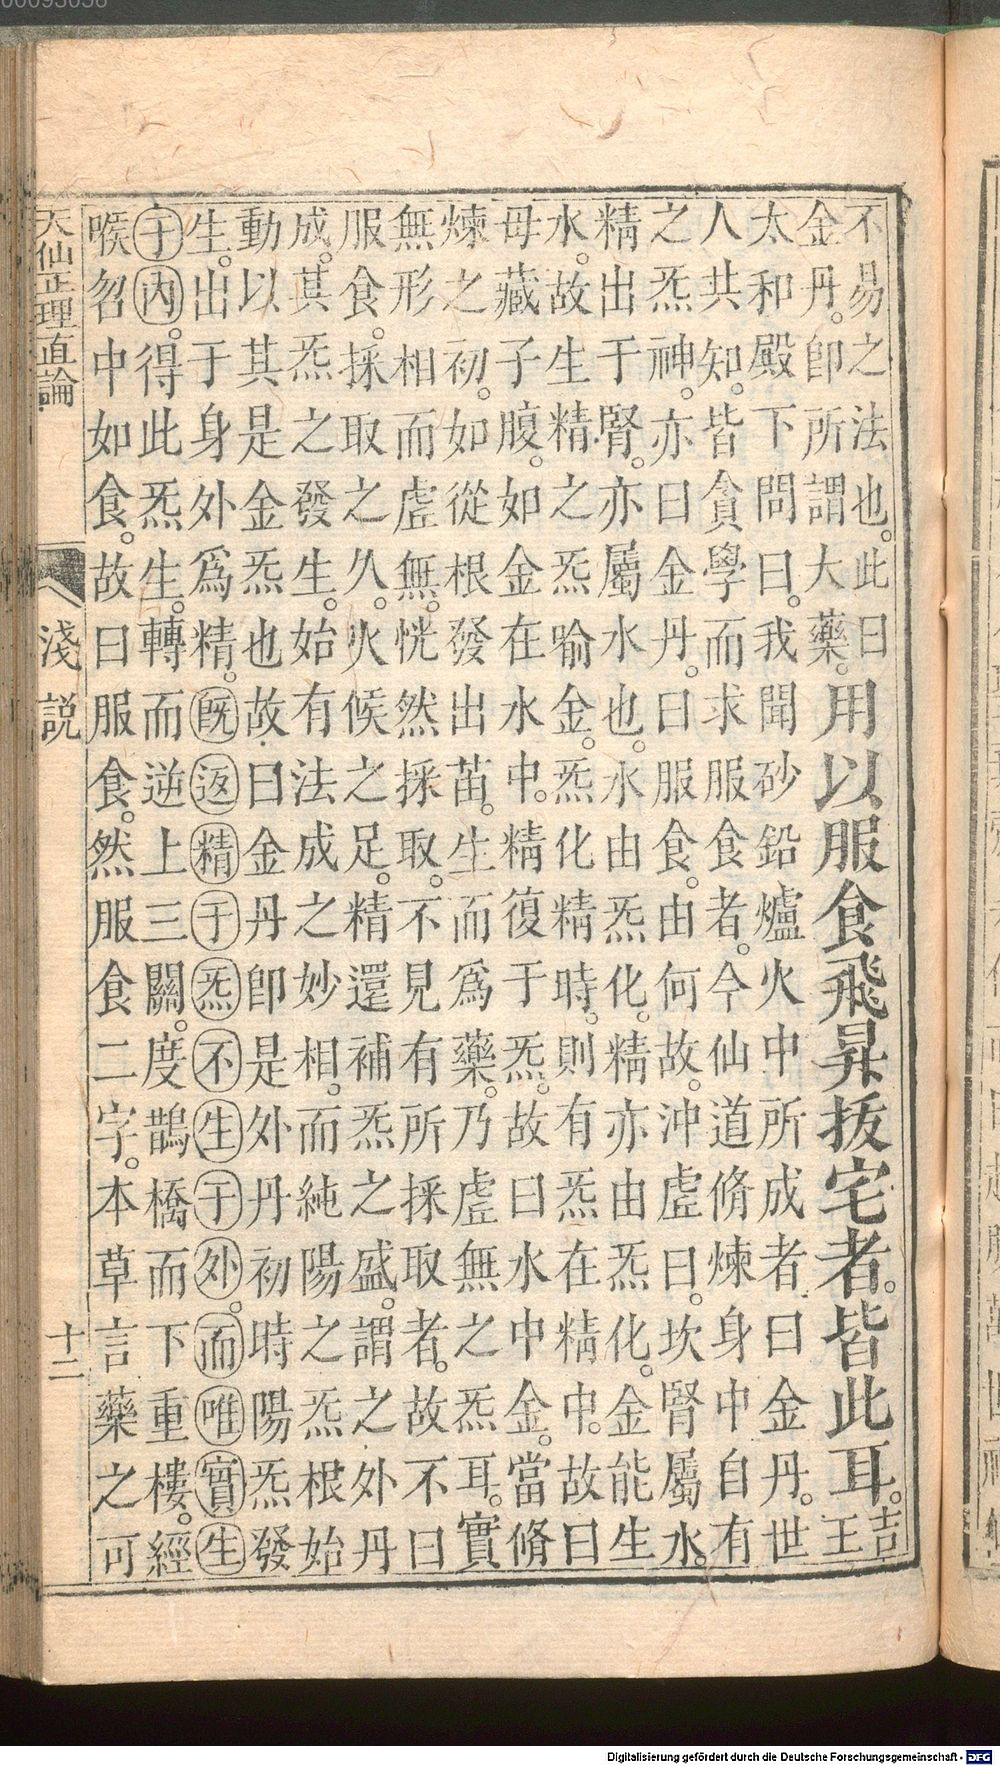 不易之法也。此曰
金丹。卽所謂大藥。
用以服食飛昇拔宅者。皆此耳。
吉
王
太和殿下問曰。我聞砂鉛爐火中所成者曰金丹。世
人共知。皆貪學而求服食者。今仙道脩煉身中自有
之炁神。亦曰金丹。曰服食。由何故。沖虛曰。坎腎屬水。
精出于腎。亦屬水也。水由炁化。精亦由炁化。金能生
水。故生精之炁喻金。炁化精時。則有炁在精中。故曰
母藏子腹。如金在水中。精復于炁。故曰水中金。當脩
煉之初。如從根發出苗。生而爲藥。乃虛無之炁耳。實
無形相而虛無。恍然採取。不見有所採取者。故不曰
服食。採取之久。火候之足。精還補炁之盛。謂之外丹
成。其炁之發生。始有法成之妙相。而純陽之炁根始
動以其是金炁也故曰金丹卽是外丹初時陽炁發
生。出于身外爲精。旣返精于炁不生于外。而唯實生
于內。得此炁生。轉而逆上三關。度鵲橋而下重樓。經
喉中如食。故曰服食。然服食二字。本草言藥之可
天仙正理直論
淺説
十二
00093038
Digitalisierung gefördert durch die Deutsche Forschungsgemeinschaft - DFG